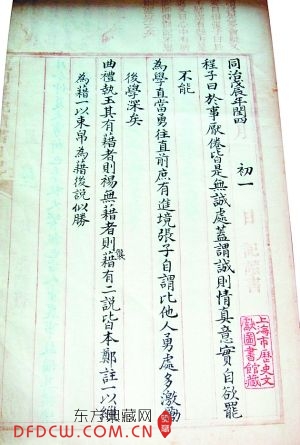 同治□辰年閏四
初一
程子曰於事厭倦皆是無誠處蓋謂誠則情真意實自欲罷
不能
為學直當勇往直前庶有進境張子自謂比他人勇處多激勵
後學深矣
曲禮執玉其有藉者則裼無藉者則襲藉有二說皆本鄭註一以繅
為藉一以束帛為藉後說似勝
日記
上海市歷史文
獻圖書館藏
东方典藏网
DFDCW.COM.CN